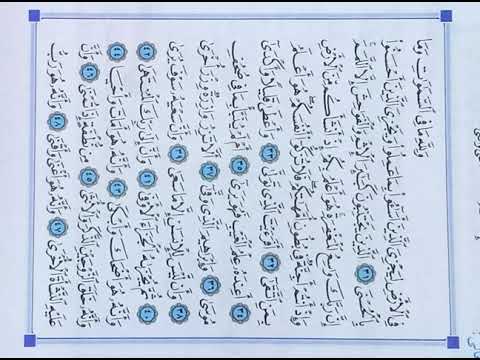 وَلِلَّهِ مَا فِى ٱلسَّمَٰوَٰتِ وَمَا
فِى ٱلْأَرْضِ لِيَجْزِىَ ٱلَّذِينَ أَسَٰٓـُٔوا۟ بِمَا عَمِلُوا۟ وَيَجْزِىَ ٱلَّذِينَ أَحْسَنُوا۟
بِٱلْحُسْنَى ٣١ ٱلَّذِينَ يَجْتَنِبُونَ كَبَٰٓئِرَ ٱلْإِثْمِ وَٱلْفَوَٰحِشَ إِلَّا ٱللَّمَمَ
إِنَّ رَبَّكَ وَٰسِعُ ٱلْمَغْفِرَةِ هُوَ أَعْلَمُ بِكُمْ إِذْ أَنشَأَكُم مِّنَ ٱلْأَرْضِ
وَإِذْ أَنتُمْ أَجِنَّةٌ فِى بُطُونِ أُمَّهَٰتِكُمْ فَلَا تُزَكُّوٓا۟ أَنفُسَكُمْ هُوَ أَعْلَمُ
بِمَنِ ٱتَّقَىٰٓ ٣٢ أَفَرَءَيْتَ ٱلَّذِى تَوَلَّىٰ ٣٣ وَأَعْطَىٰ قَلِيلًا وَأَكْدَىٰٓ
٣٤ أَعِندَهُۥ عِلْمُ ٱلْغَيْبِ فَهُوَ يَرَىٰٓ ٣٥ أَمْ لَمْ يُنَبَّأْ بِمَا فِى صُحُفِ
مُوسَىٰ ٣٦ وَإِبْرَٰهِيمَ ٱلَّذِى وَفَّىٰٓ ٣٧ أَلَّا تَزِرُ وَازِرَةٌ وِزْرَ أُخْرَىٰ
٣٨ وَأَن لَّيْسَ لِلْإِنسَٰنِ إِلَّا مَا سَعَىٰ ٣٩ وَأَنَّ سَعْيَهُۥ سَوْفَ يُرَىٰ
٤٠ ثُمَّ يُجْزَىٰهُ ٱلْجَزَآءَ ٱلْأَوْفَىٰ ٤١ وَأَنَّ إِلَىٰ رَبِّكَ ٱلْمُنتَهَىٰ ٤٢
وَأَنَّهُۥ هُوَ أَضْحَكَ وَأَبْكَىٰ ٤٣ وَأَنَّهُۥ هُوَ أَمَاتَ وَأَحْيَا ٤٤
وَأَنَّهُۥ خَلَقَ ٱلزَّوْجَيْنِ ٱلذَّكَرَ وَٱلْأُنثَىٰ ٤٥ مِن نُّطْفَةٍ إِذَا تُمْنَىٰ ٤٦ وَأَنَّ
عَلَيْهِ ٱلنَّشْأَةَ ٱلْأُخْرَىٰ ٤٧ وَأَنَّهُۥ هُوَ أَغْنَىٰ وَأَقْنَىٰ ٤٨ وَأَنَّهُۥ هُوَ رَبُّ